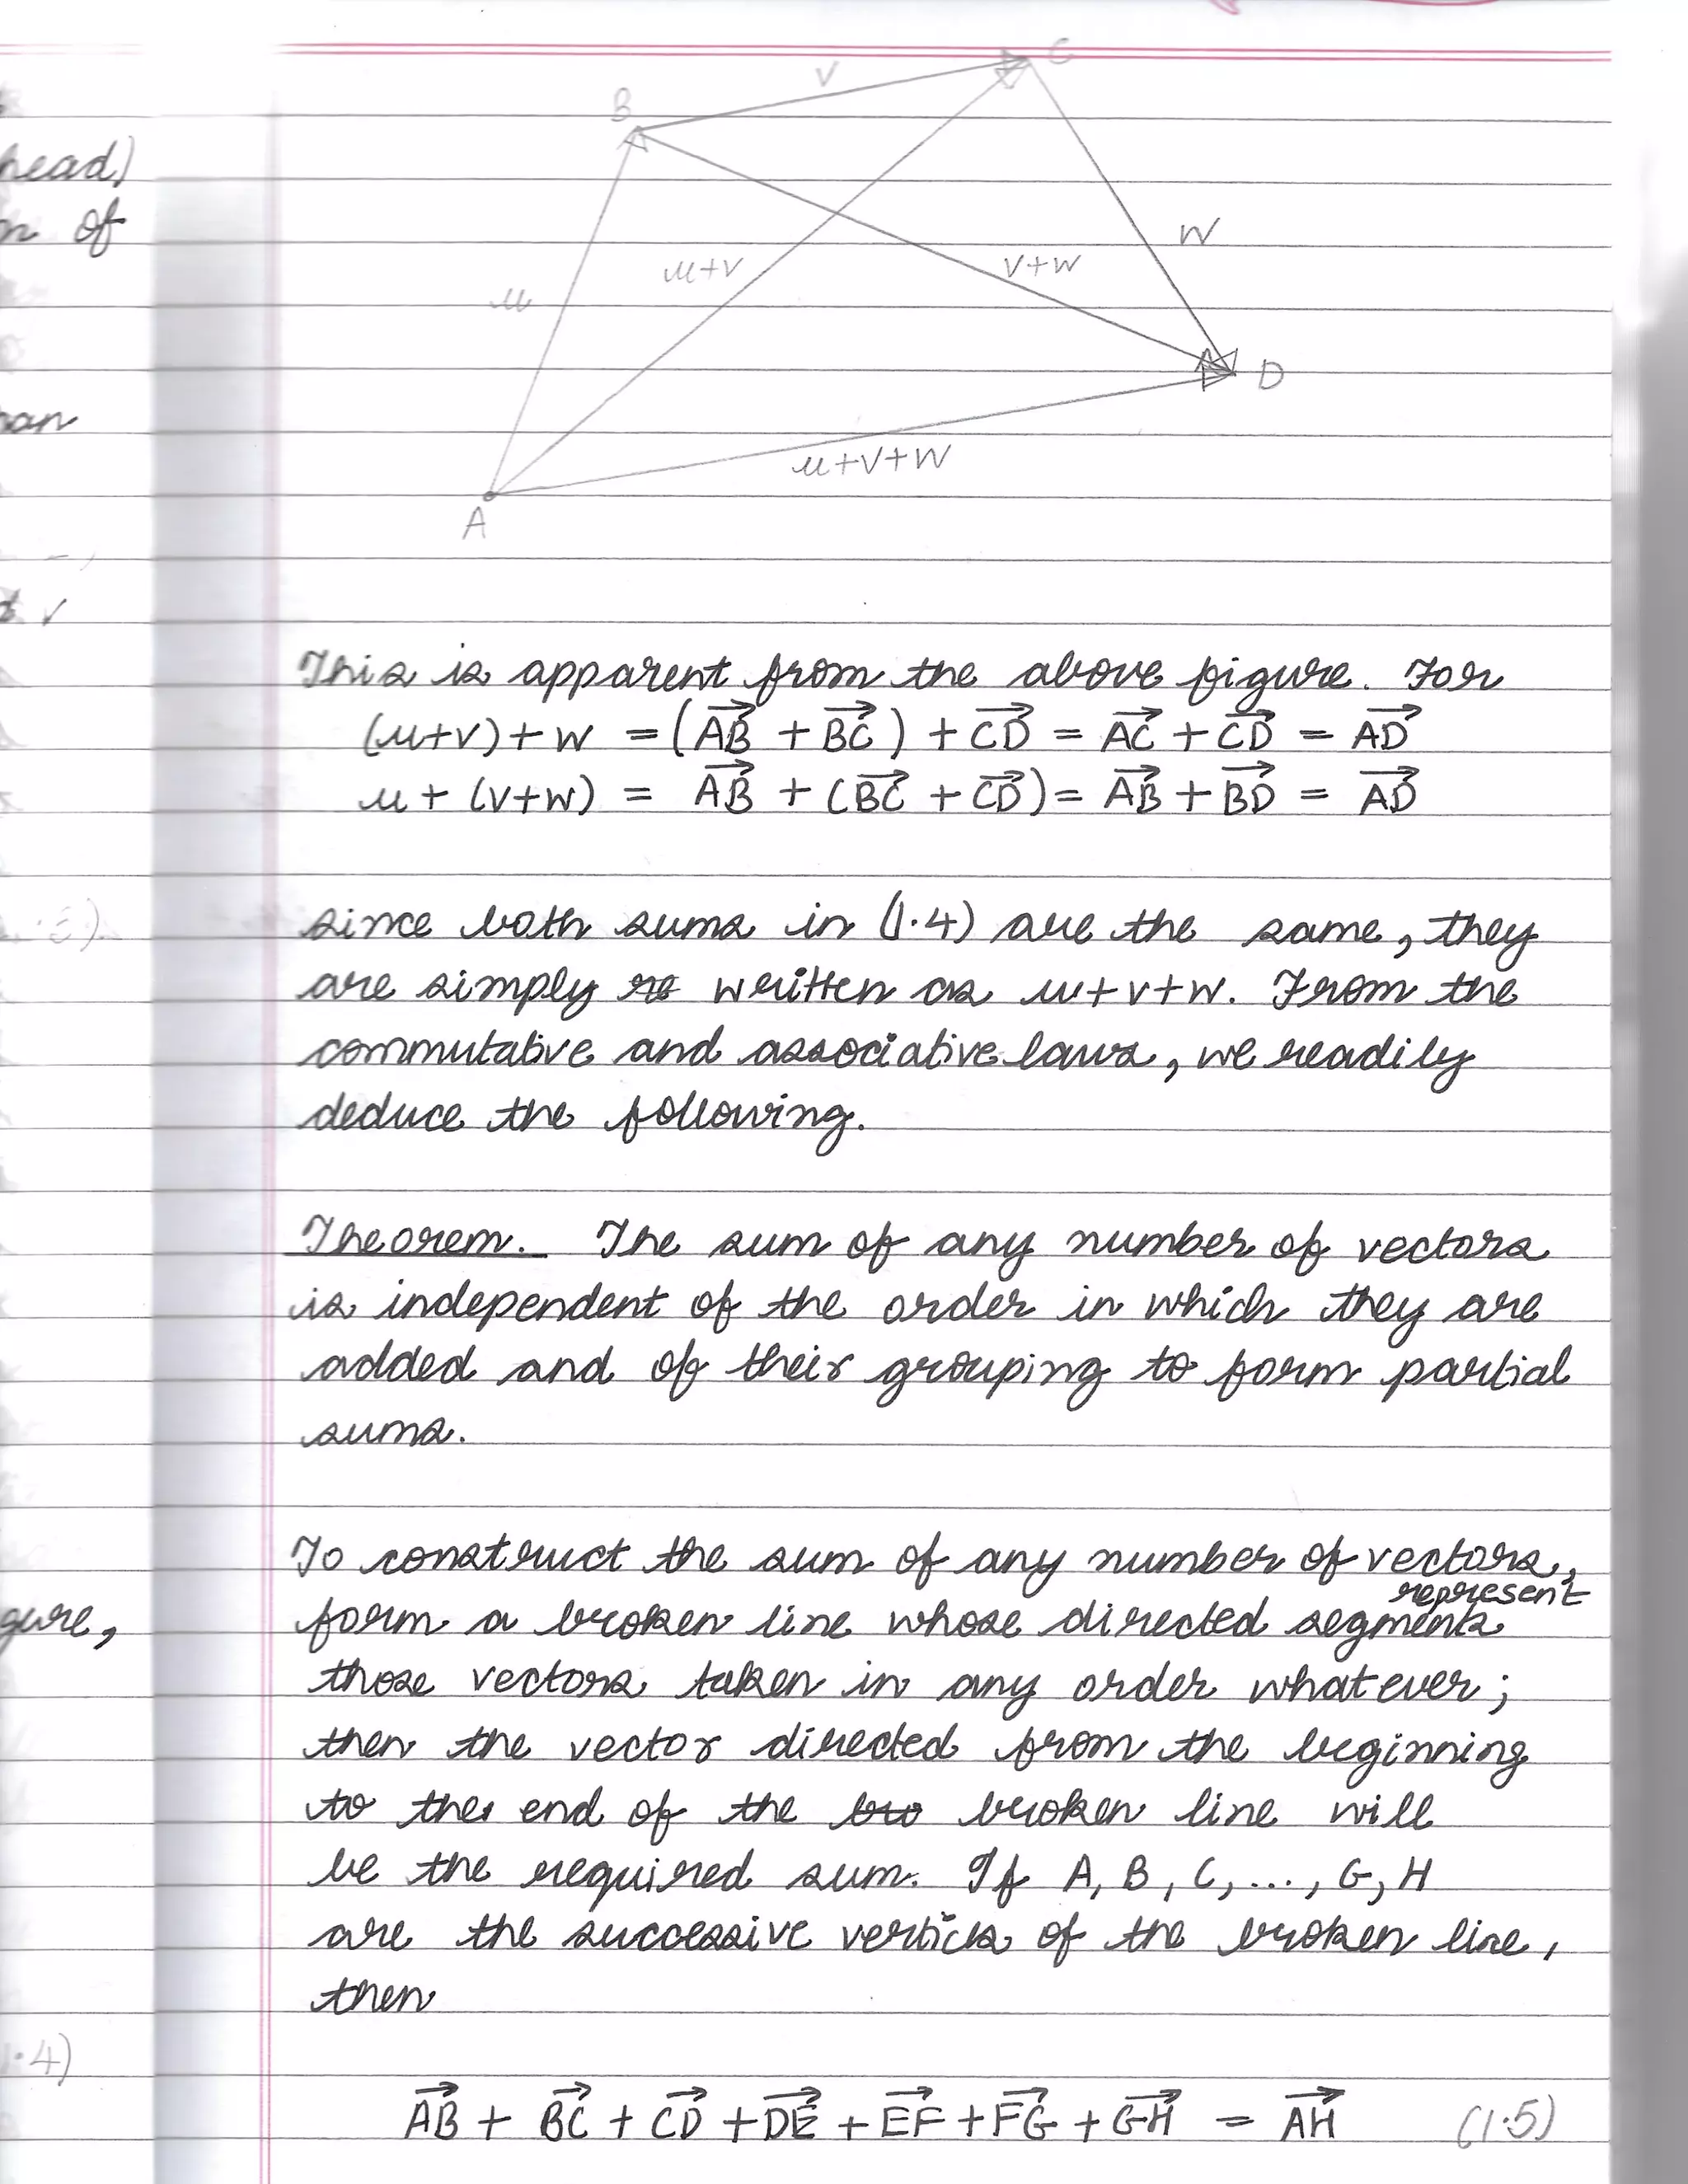 C
V
B
W
u+v
v+w
u
D
u+v+w
A
head)
n of
This is apparent from the above figure. For
(u+v)+w = (AB→ + BC→) + CD→ = AC→ + CD→ = AD→
u+(v+w) = AB→ + (BC→ + CD→) = AB→ + BD→ = AD→
since both sums in (1.4) are the same, they
are simply written as u+v+w. From the
commutative and associative laws, we readily
deduce the following.
Theorem. The sum of any number of vectors
is independent of the order in which they are
added and of their grouping to form partial
sums.
To construct the sum of any number of vectors,
represent
form a broken line whose directed segments
those vectors taken in any order whatever;
then the vector directed from the beginning
to the end of the bro broken line will
be the required sum. If A, B, C, ..., G, H
are the successive vertices of the broken line,
then
.4)
AB→ + BC→ + CD→ + DE→ + EF→ + FG→ + GH→ = AH→ (1.5)